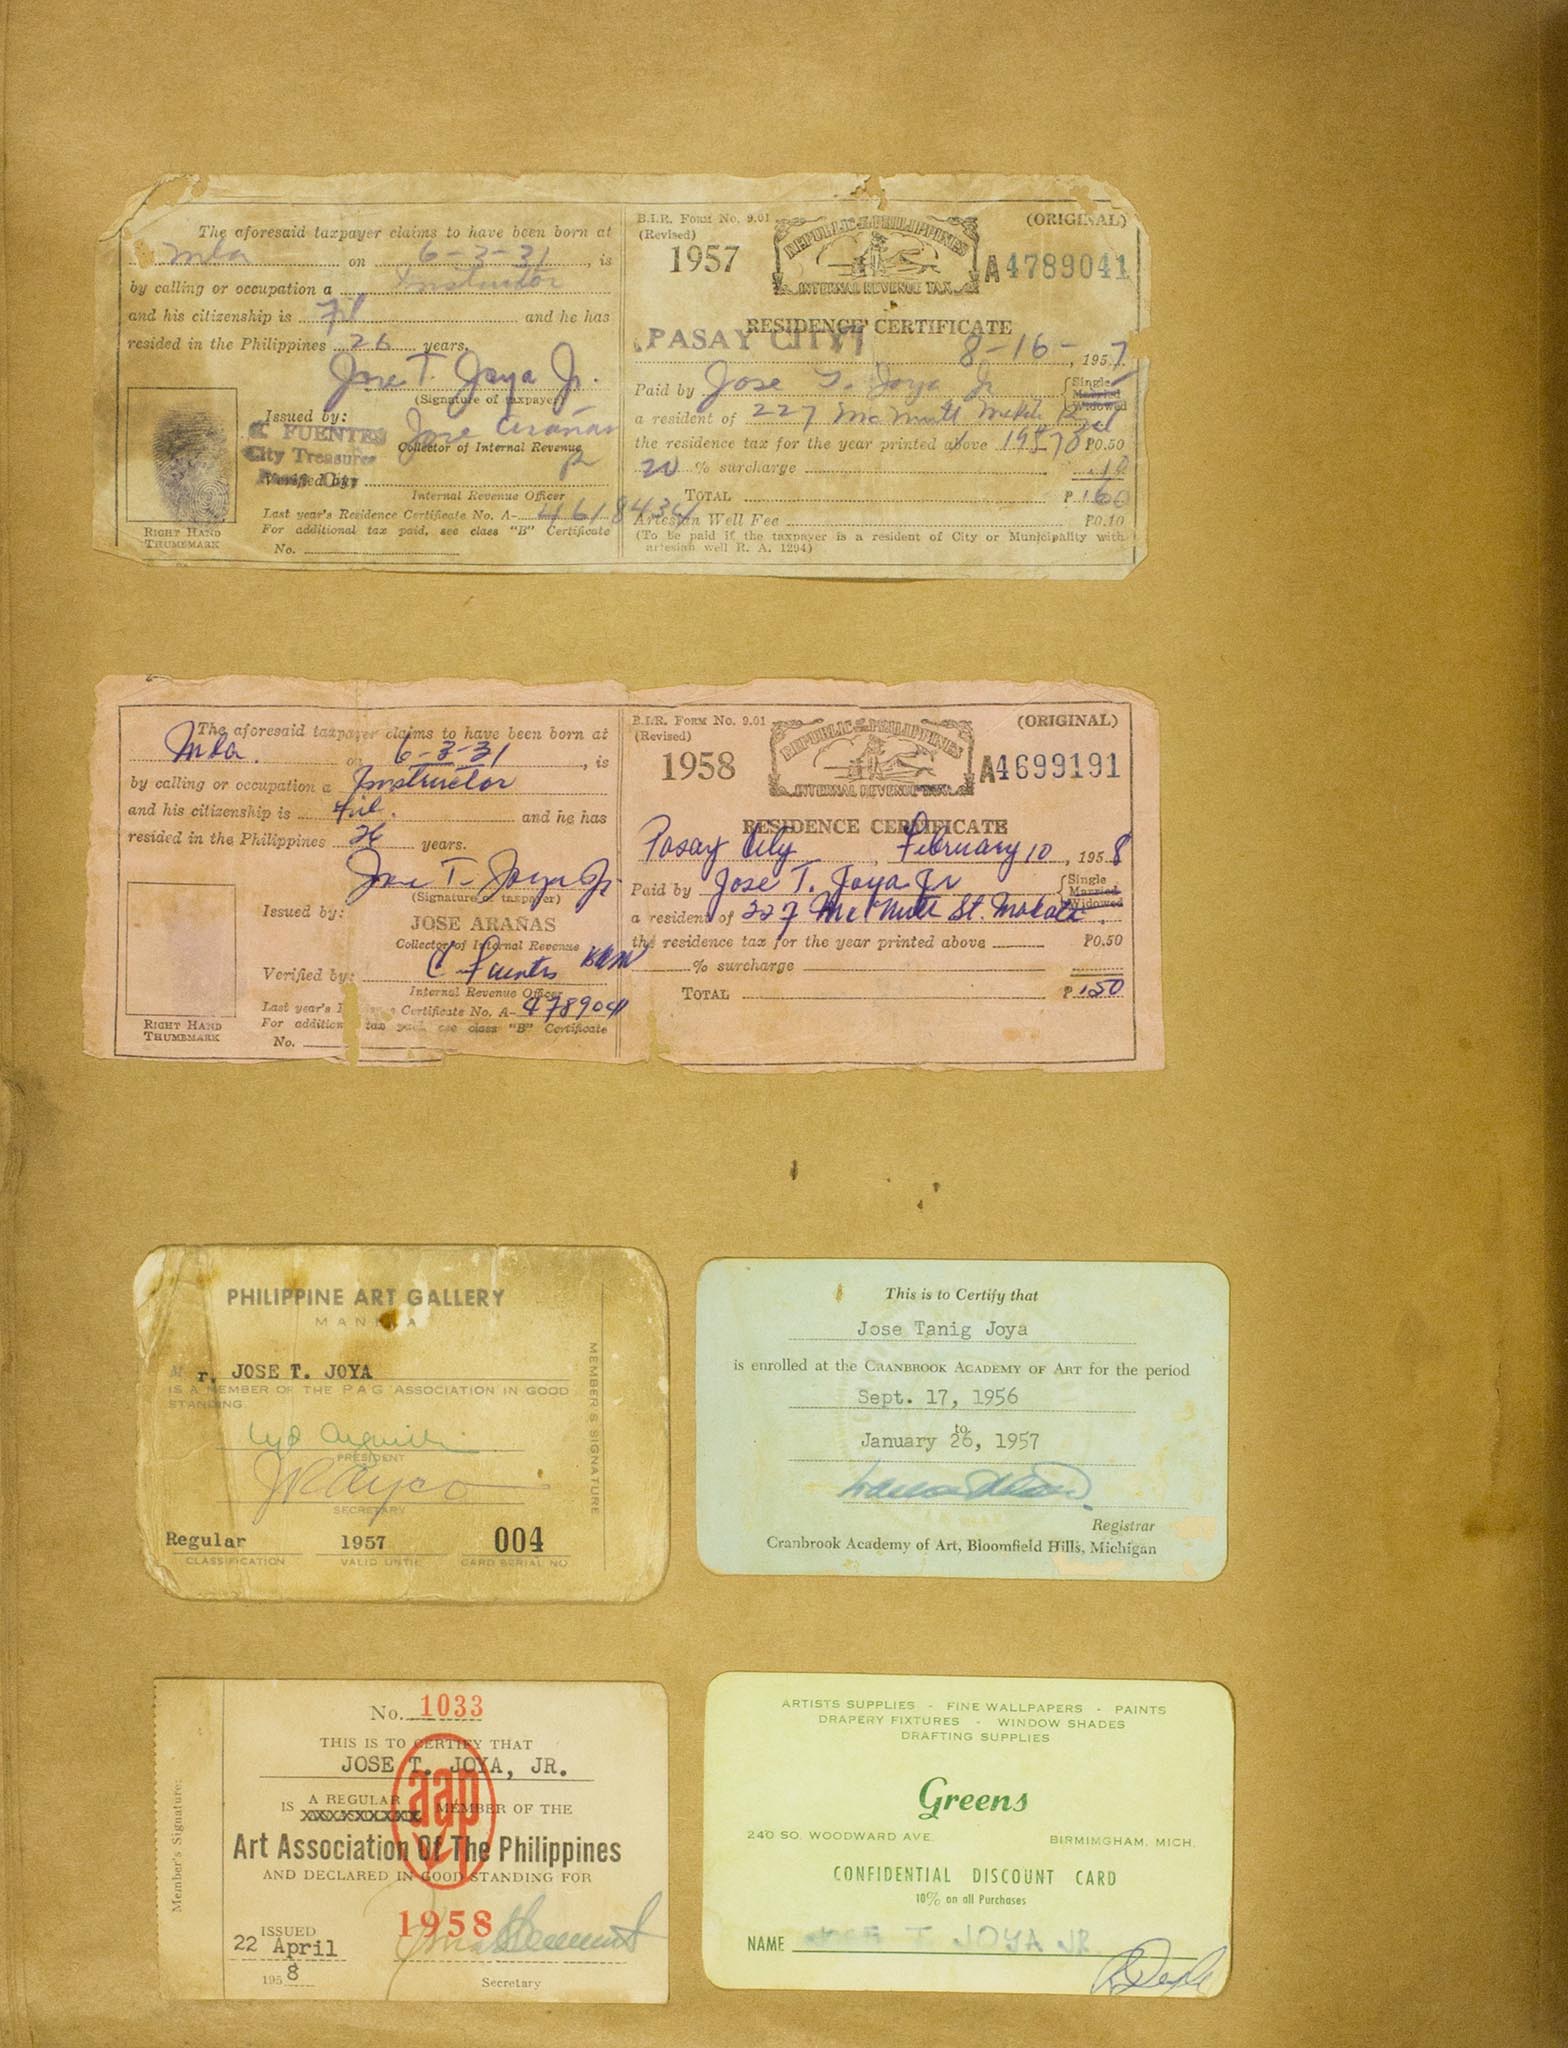 The aforesaid taxpayer claims to have been born at
Mla on 6-3-31, is
by calling or occupation a Instructor
and his citizenship is Fil and he has
resided in the Philippines 26 years.
Jose T. Joya Jr.
(Signature of taxpayer)
Issued by: Jose Arañas
C. FUENTES
Collector of Internal Revenue
City Treasurer
Verified by:
Internal Revenue Officer
Last year's Residence Certificate No. A-4618434
For additional tax paid, see class "B" Certificate
No.
RIGHT HAND
THUMBMARK
B.I.R. FORM No. 9.01
(Revised)
(ORIGINAL)
1957
REPUBLIC OF THE PHILIPPINES
INTERNAL REVENUE TAX
A4789041
RESIDENCE CERTIFICATE
PASAY CITY 8-16-, 1957
Paid by Jose T. Joya Jr {Single
Married
Widowed
a resident of 227 McNutt Makati Rizal
the residence tax for the year printed above 1957 P0.50
20 % surcharge .10
TOTAL P .60
Artesian Well Fee P0.10
(To be paid if the taxpayer is a resident of City or Municipality with
artesian well R. A. 1294)
The aforesaid taxpayer claims to have been born at
Mla. on 6-3-31, is
by calling or occupation a Instructor
and his citizenship is Fil. and he has
resided in the Philippines 26 years.
Jose T. Joya Jr.
(Signature of taxpayer)
Issued by:
JOSE ARAÑAS
Collector of Internal Revenue
Verified by: C Fuentes
Internal Revenue Officer
Last year's Certificate No. A-4789041
For addition tax paid, see class "B" Certificate
No.
RIGHT HAND
THUMBMARK
B.I.R. FORM No. 9.01
(Revised)
(ORIGINAL)
1958
REPUBLIC OF THE PHILIPPINES
INTERNAL REVENUE TAX
A4699191
RESIDENCE CERTIFICATE
Pasay City, February 10, 1958
Paid by Jose T. Joya Jr {Single
Married
Widowed
a resident of 227 Mc Nutt St. Makati.
the residence tax for the year printed above P0.50
% surcharge
TOTAL P .50
PHILIPPINE ART GALLERY
MANILA
Mr. JOSE T. JOYA
IS A MEMBER OF THE PAG ASSOCIATION IN GOOD
STANDING
PRESIDENT
SECRETARY
Regular 1957 004
CLASSIFICATION VALID UNTIL CARD SERIAL NO
MEMBER'S SIGNATURE
This is to Certify that
Jose Tanig Joya
is enrolled at the CRANBROOK ACADEMY OF ART for the period
Sept. 17, 1956
to
January 26, 1957
Registrar
Cranbrook Academy of Art, Bloomfield Hills, Michigan
Member's Signature:
No. 1033
THIS IS TO CERTIFY THAT
JOSE T. JOYA, JR.
A REGULAR
IS XXXXXXXXXX MEMBER OF THE
aap
Art Association Of The Philippines
AND DECLARED IN GOOD STANDING FOR
1958
ISSUED
22 April
1958
Secretary
ARTISTS SUPPLIES - FINE WALLPAPERS - PAINTS
DRAPERY FIXTURES - WINDOW SHADES
DRAFTING SUPPLIES
Greens
240 SO. WOODWARD AVE. BIRMIMGHAM, MICH.
CONFIDENTIAL DISCOUNT CARD
10% on all Purchases
NAME JOSE T JOYA JR